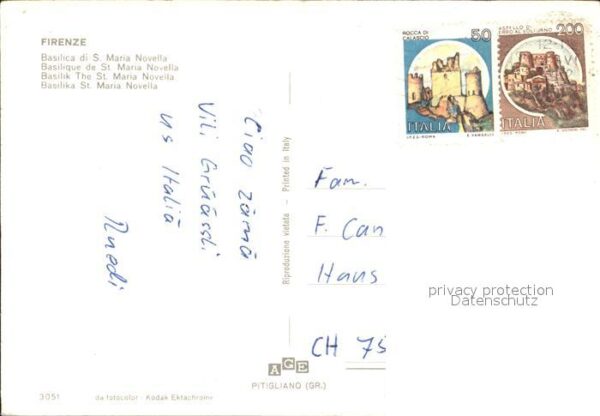 FIRENZE
Basilica di S. Maria Novella
Basilique de St. Maria Novella
Basilik The St. Maria Novella
Basilika St. Maria Novella
Ciao zämä
Vili Grüässli
us Italiä
Ruedi
Riproduzione vietata - Printed in Italy
ROCCA DI CALASCIO
50
ITALIA
200
ITALIA
Fam.
F. Can
Hans
CH 75
privacy protection
Datenschutz
AGE
PITIGLIANO (GR.)
3051
da fotocolor - Kodak Ektachrome